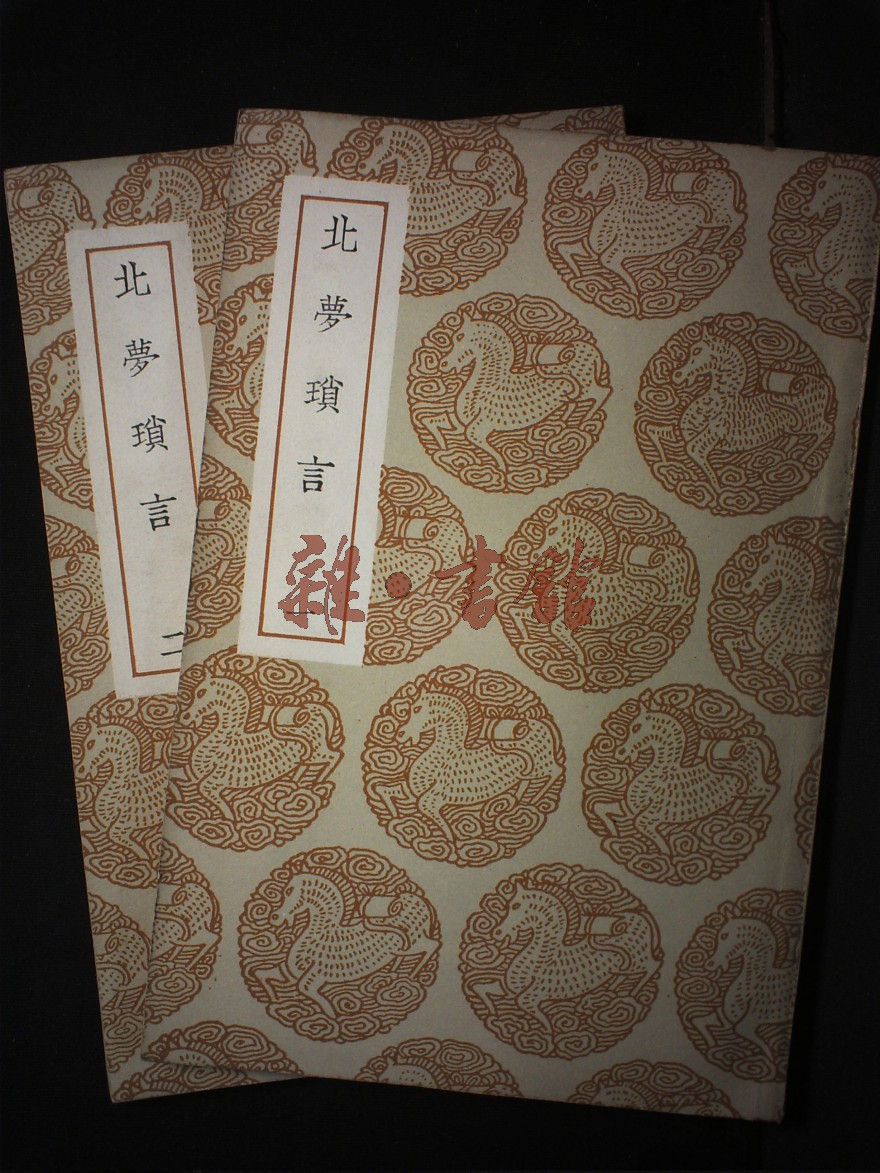 北夢瑣言
一
北夢瑣言
二
雜·書館